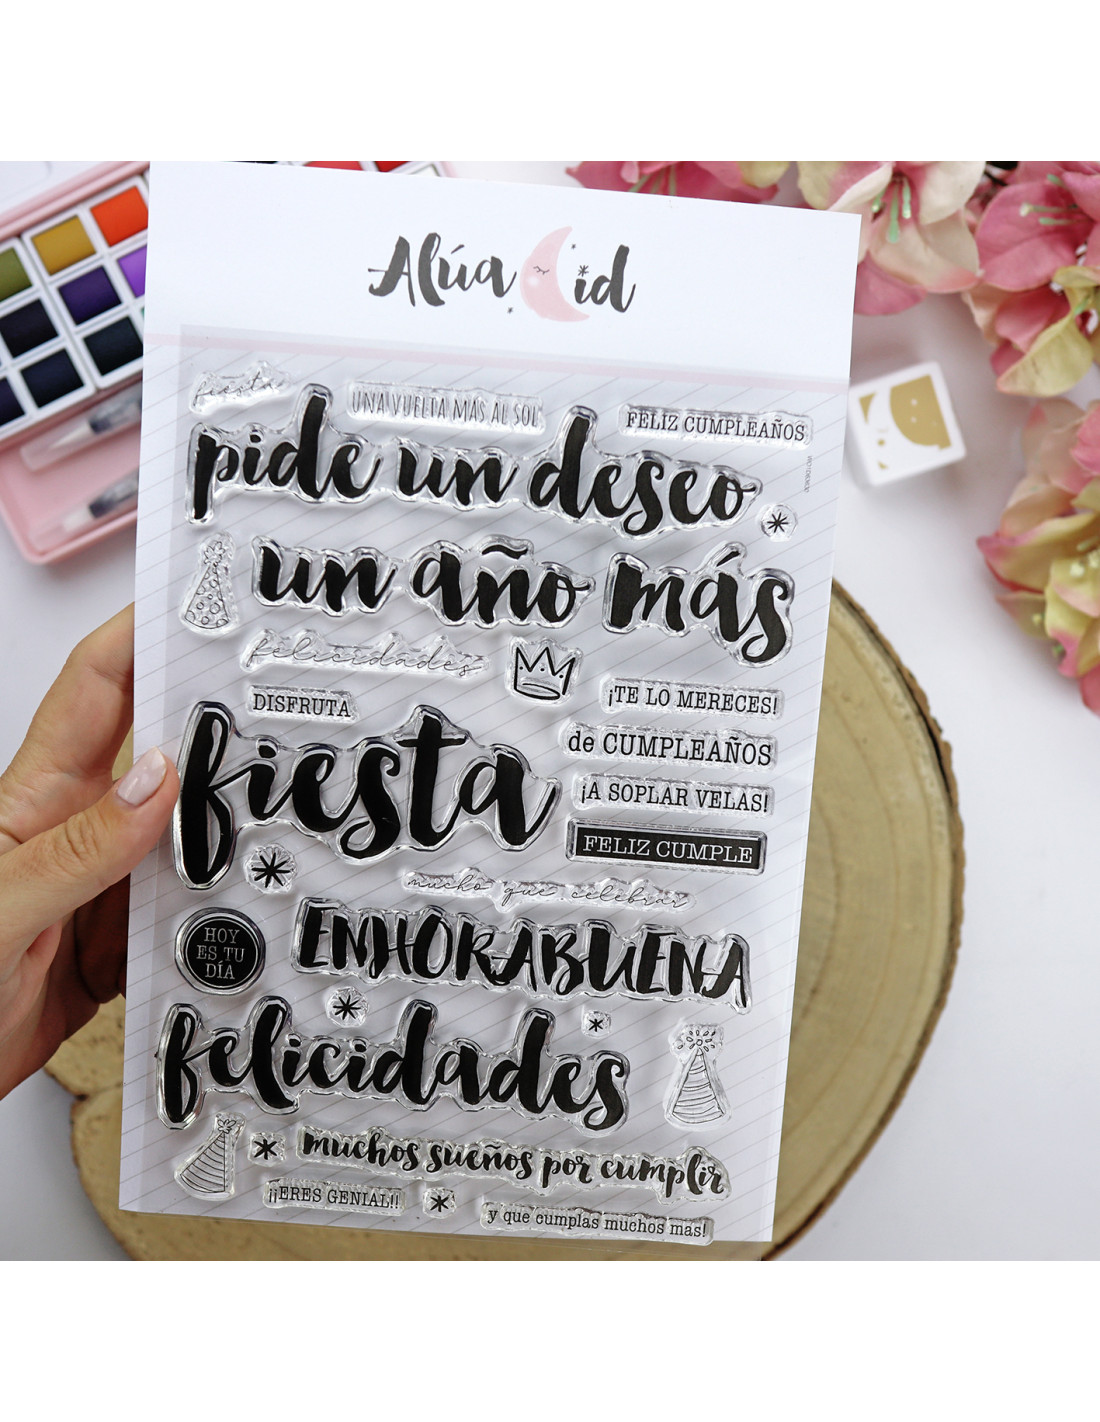 Alúa Cid
fiesta
UNA VUELTA MÁS AL SOL
FELIZ CUMPLEAÑOS
pide un deseo
un año más
felicidades
DISFRUTA
¡TE LO MERECES!
fiesta
de CUMPLEAÑOS
¡A SOPLAR VELAS!
FELIZ CUMPLE
mucho que celebrar
HOY
ES TU
DÍA
ENHORABUENA
felicidades
muchos sueños por cumplir
¡¡ERES GENIAL!!
y que cumplas muchos mas!